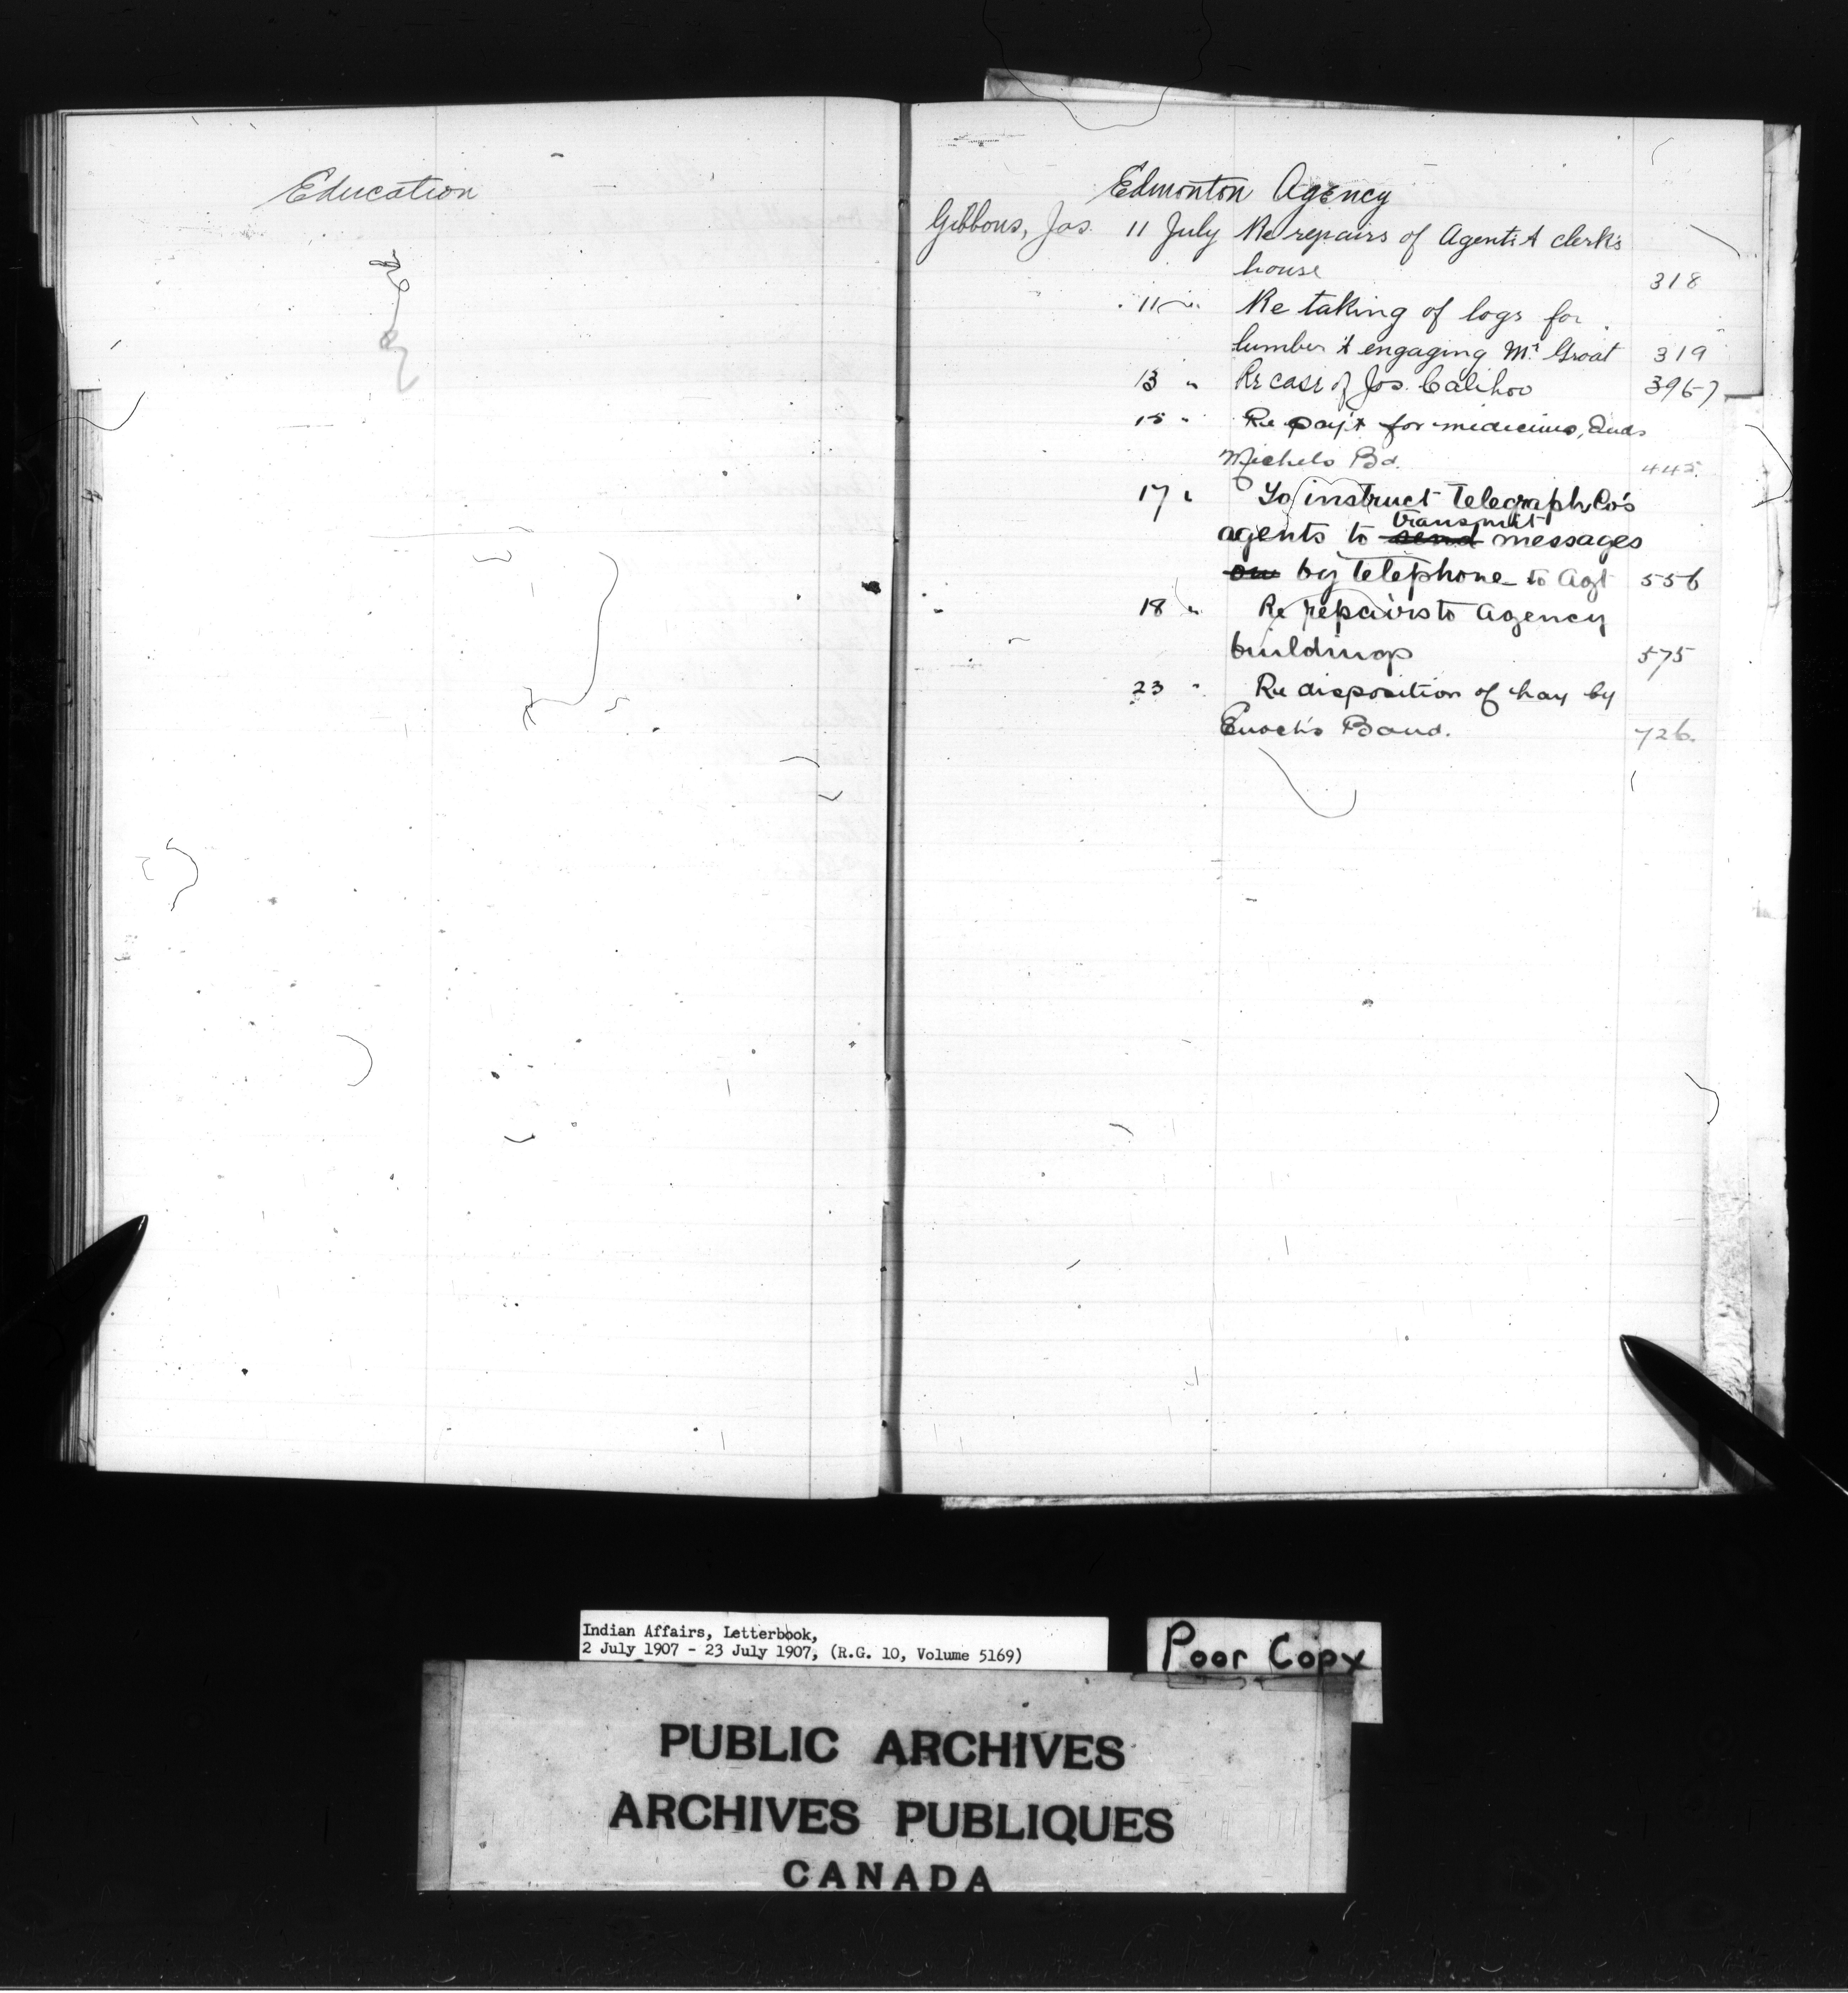 Education
Edmonton Agency
Gibbons, Jas. 11 July Re repairs of Agent & clerk's
house 318
11 " Re taking of logs for
lumber & engaging Mr. Groat 319
13 " Re case of Jos. Calihoo 396-7
15 " Re pay't for medicine, Inds
Michels Bd. 445.
17 " To instruct Telegraph Co's
transmit
agents to send messages
on by telephone to Agt 556
18 " Re repairs to Agency
buildings 575
23 " Re disposition of hay by
Enoch's Band. 726.
Indian Affairs, Letterbook,
2 July 1907 - 23 July 1907, (R.G. 10, Volume 5169)
Poor Copy
PUBLIC ARCHIVES
ARCHIVES PUBLIQUES
CANADA